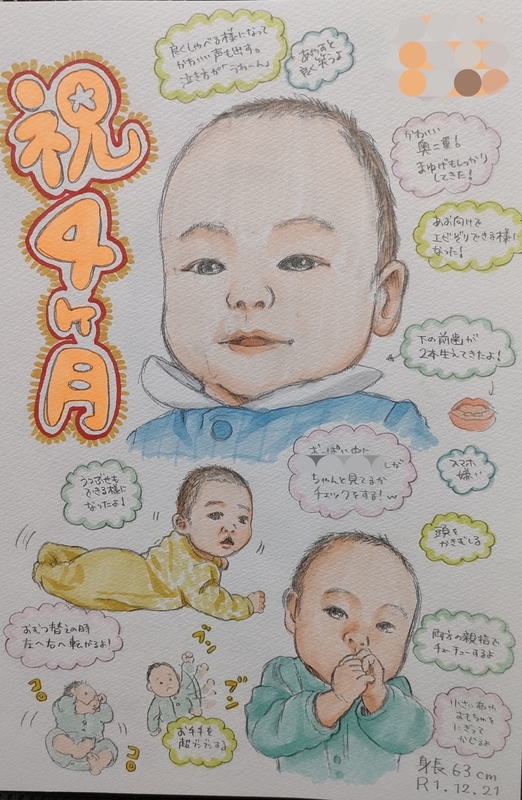 祝
4
ヶ
月
良くしゃべる様になって
かわいい声も出す。
泣き方が「うわーん」
あやすと
良く笑うよ
かわいい
奥二重!
まゆげもしっかり
してきた!
あお向けで
エビぞりできる様に
なった!
下の前歯が
2本生えてきたよ!
おっぱい中に
しが
ちゃんと見てるか
チェックをする!w
スマホ
嫌い
うつぶせも
できる様に
なったよ!
頭を
かきむしる
おむつ替えの時
左へ右へ転がるよ!
両方の親指で
チューチューするよ
ブン
ブン
コロ
コロ
お手手を
超ブンブンする
小さい
おもちゃを
にぎって
かじるよ
身長63cm
R1.12.21